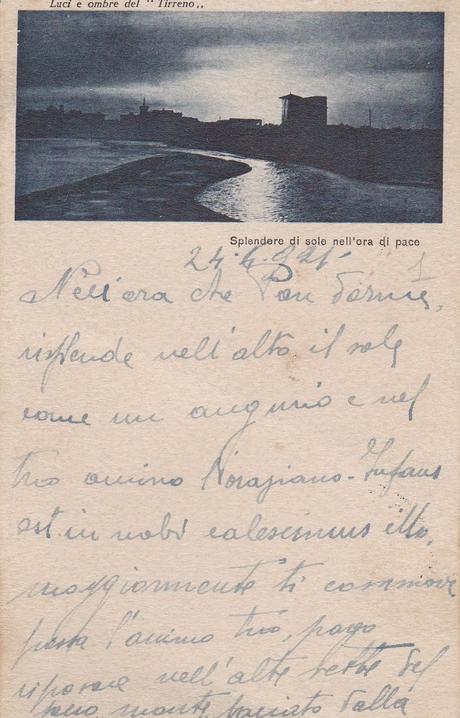 Luci e ombre del "Tirreno„
Splendere di sole nell'ora di pace
24.6.921.
1
Nell'ora che Pan dorme,
risplende nell'alto il sole
come un augurio e nel
tuo animo Oraziano -
est in nobis calescimus illo,
maggiormente ti commove
possa l'animo tuo, pago
riposare nell'alte vette del
tuo monte baciato dalla